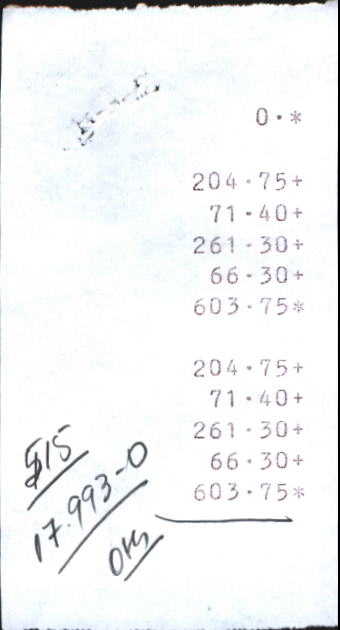 0.*
204.75+
71.40+
261.30+
66.30+
603.75*
204.75+
71.40+
261.30+
66.30+
603.75*
$15
17.993-0